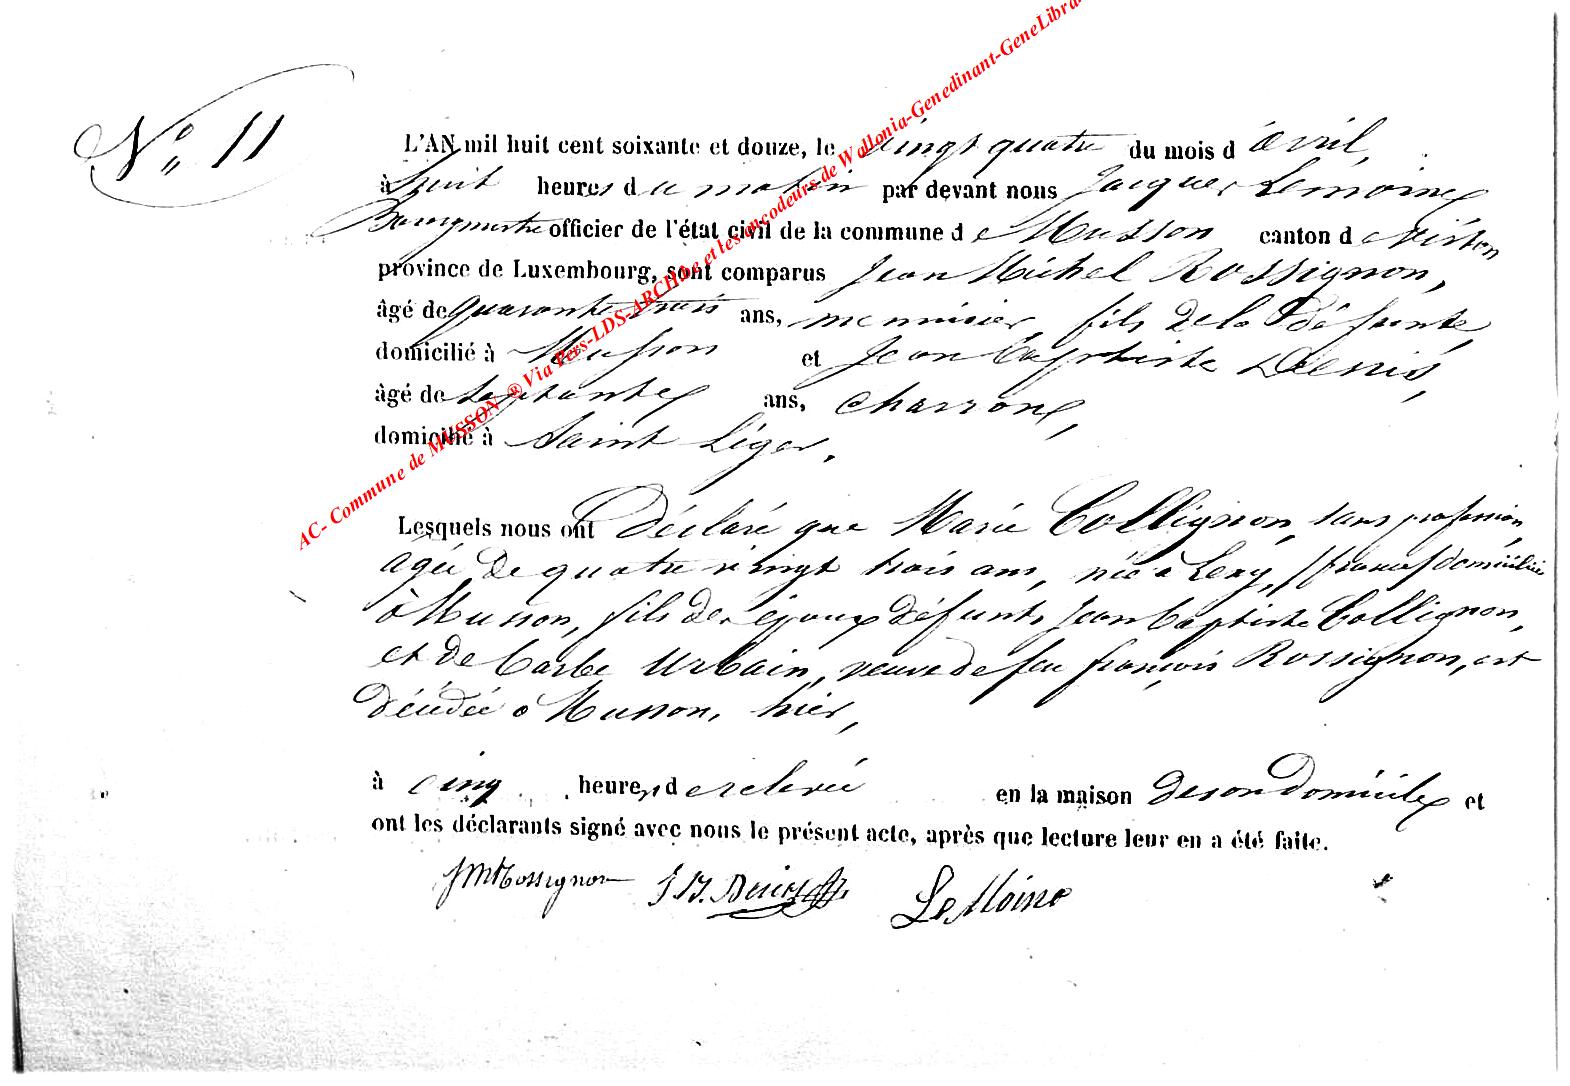 N° 11
L'AN mil huit cent soixante et douze, le vingt quatre du mois d'avril,
à huit heures du matin par devant nous Jacques Lemoine
Bourgmestre officier de l'état civil de la commune de Musson canton de Virton
province de Luxembourg, sont comparus Jean Michel Rossignon,
âgé de quarante trois ans, menuisier, fils de la défunte,
domicilié à Musson et Jean Baptiste Denis,
âgé de septante ans, charron,
domicilié à Saint Léger.
Lesquels nous ont déclaré que Marie Collignon, sans profession,
agée de quatre vingt trois ans, née à Lexy, (france) domiciliée
à Musson, fils des époux défunts Jean Baptiste Collignon,
et de Barbe Urbain, veuve de feu françois Rossignon, est
décédée à Musson, hier,
à cinq heures de relevée en la maison de son domicile et
ont les déclarants signé avec nous le présent acte, après que lecture leur en a été faite.
JMRossignon J B. Denis LeMoine
AC- Commune de MUSSON ® Via Pers-LDS-ARCHbe et les encodeurs de Wallonia-Genedinant-GeneLibra